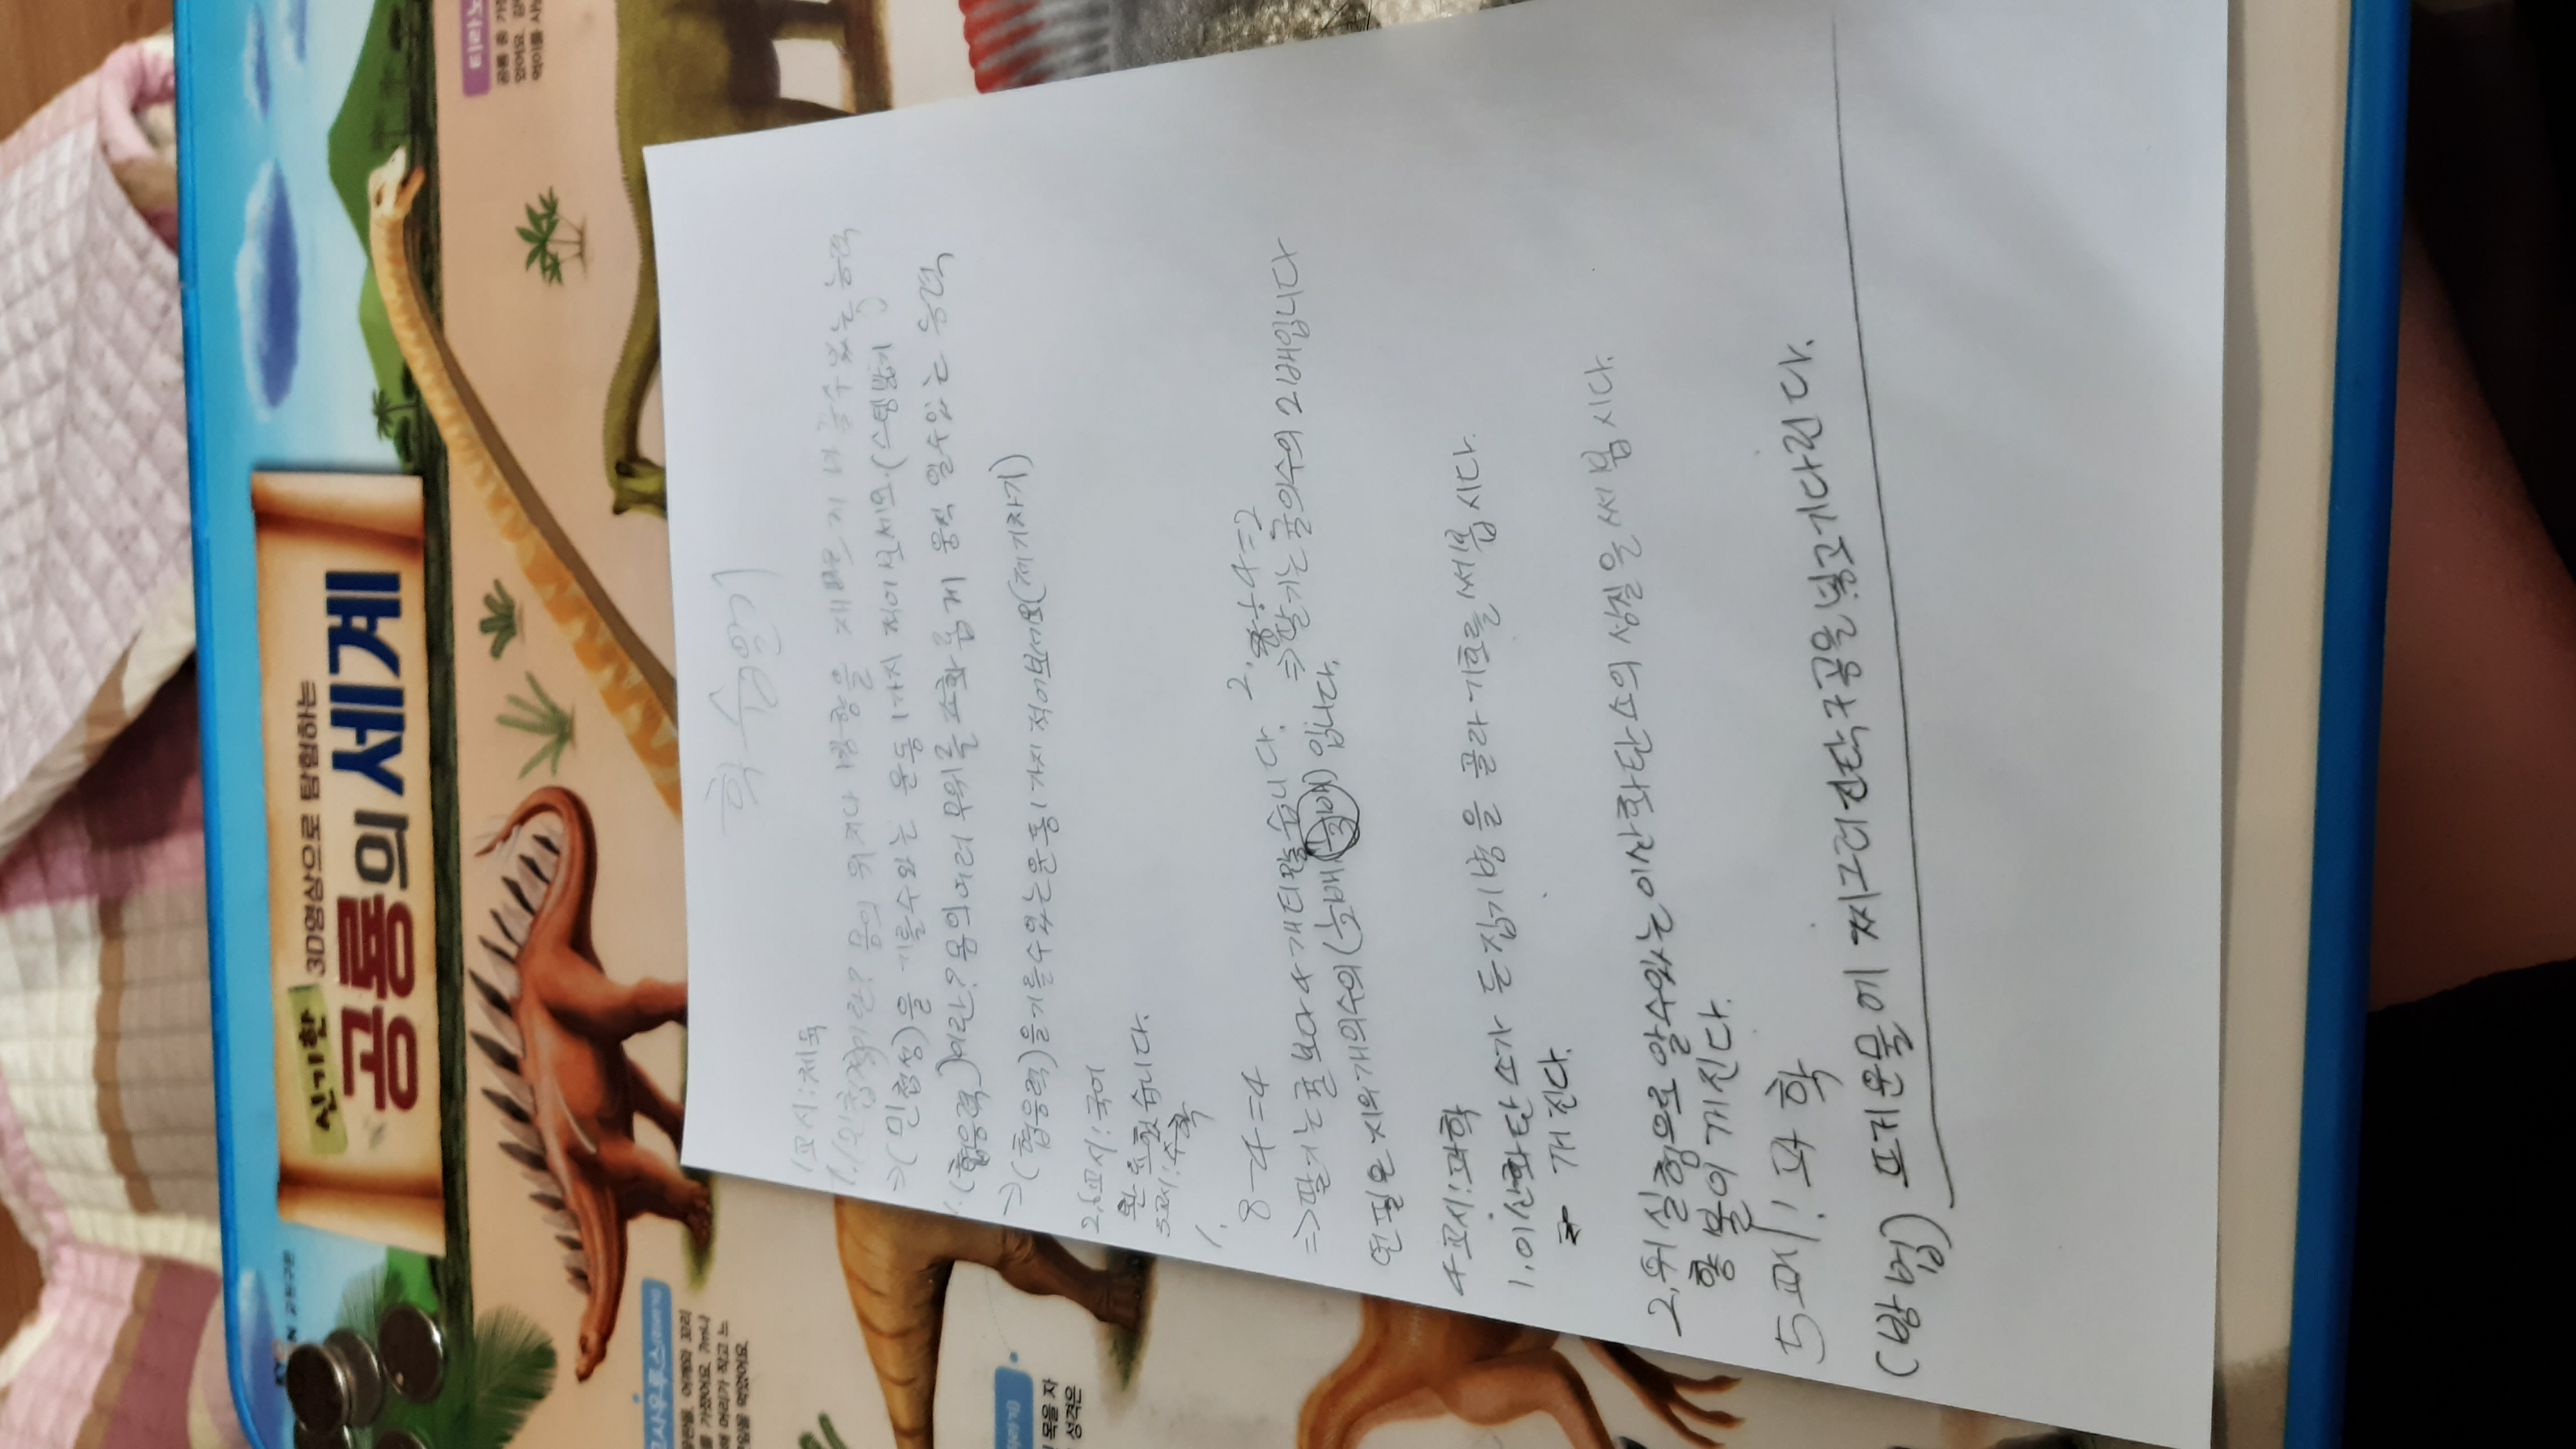 신기한
3D영상으로 탐험하는
공룡의 세계
학습일기
1교시:체육
1.(민첩성)이란? 몸의 위치나 방향을 재빠르게 바꿀수있는 능력
⇒(민첩성)을 기를수있는 운동 1가지 적어보세요.(스텝밟기)
(협응력)이란? 몸의여러 부위를 조화롭게 움직일수있는 능력
⇒(협응력)을기를수있는운동1가지 적어보세요(제기차기)
2,3교시:국어
완료했습니다.
수학
1.
8-4=4
2. 8÷4=2
⇒딸기는귤보다4개더많습니다.
⇒딸기는귤의수의 2배입니다
연필은 지우개의수의( 3배) 입니다.
4교시:과학
1.이산화탄소가 든 집기병을 골라 기호를 써봅시다.
개진다.
2.위 실험으로 알수있는 이산화탄소의 성질을 써봅시다.
향 불이 꺼진다.
5교시: 과학
(방법) 뜨거운물에 찌그러진탁구공을넣고기다린다.